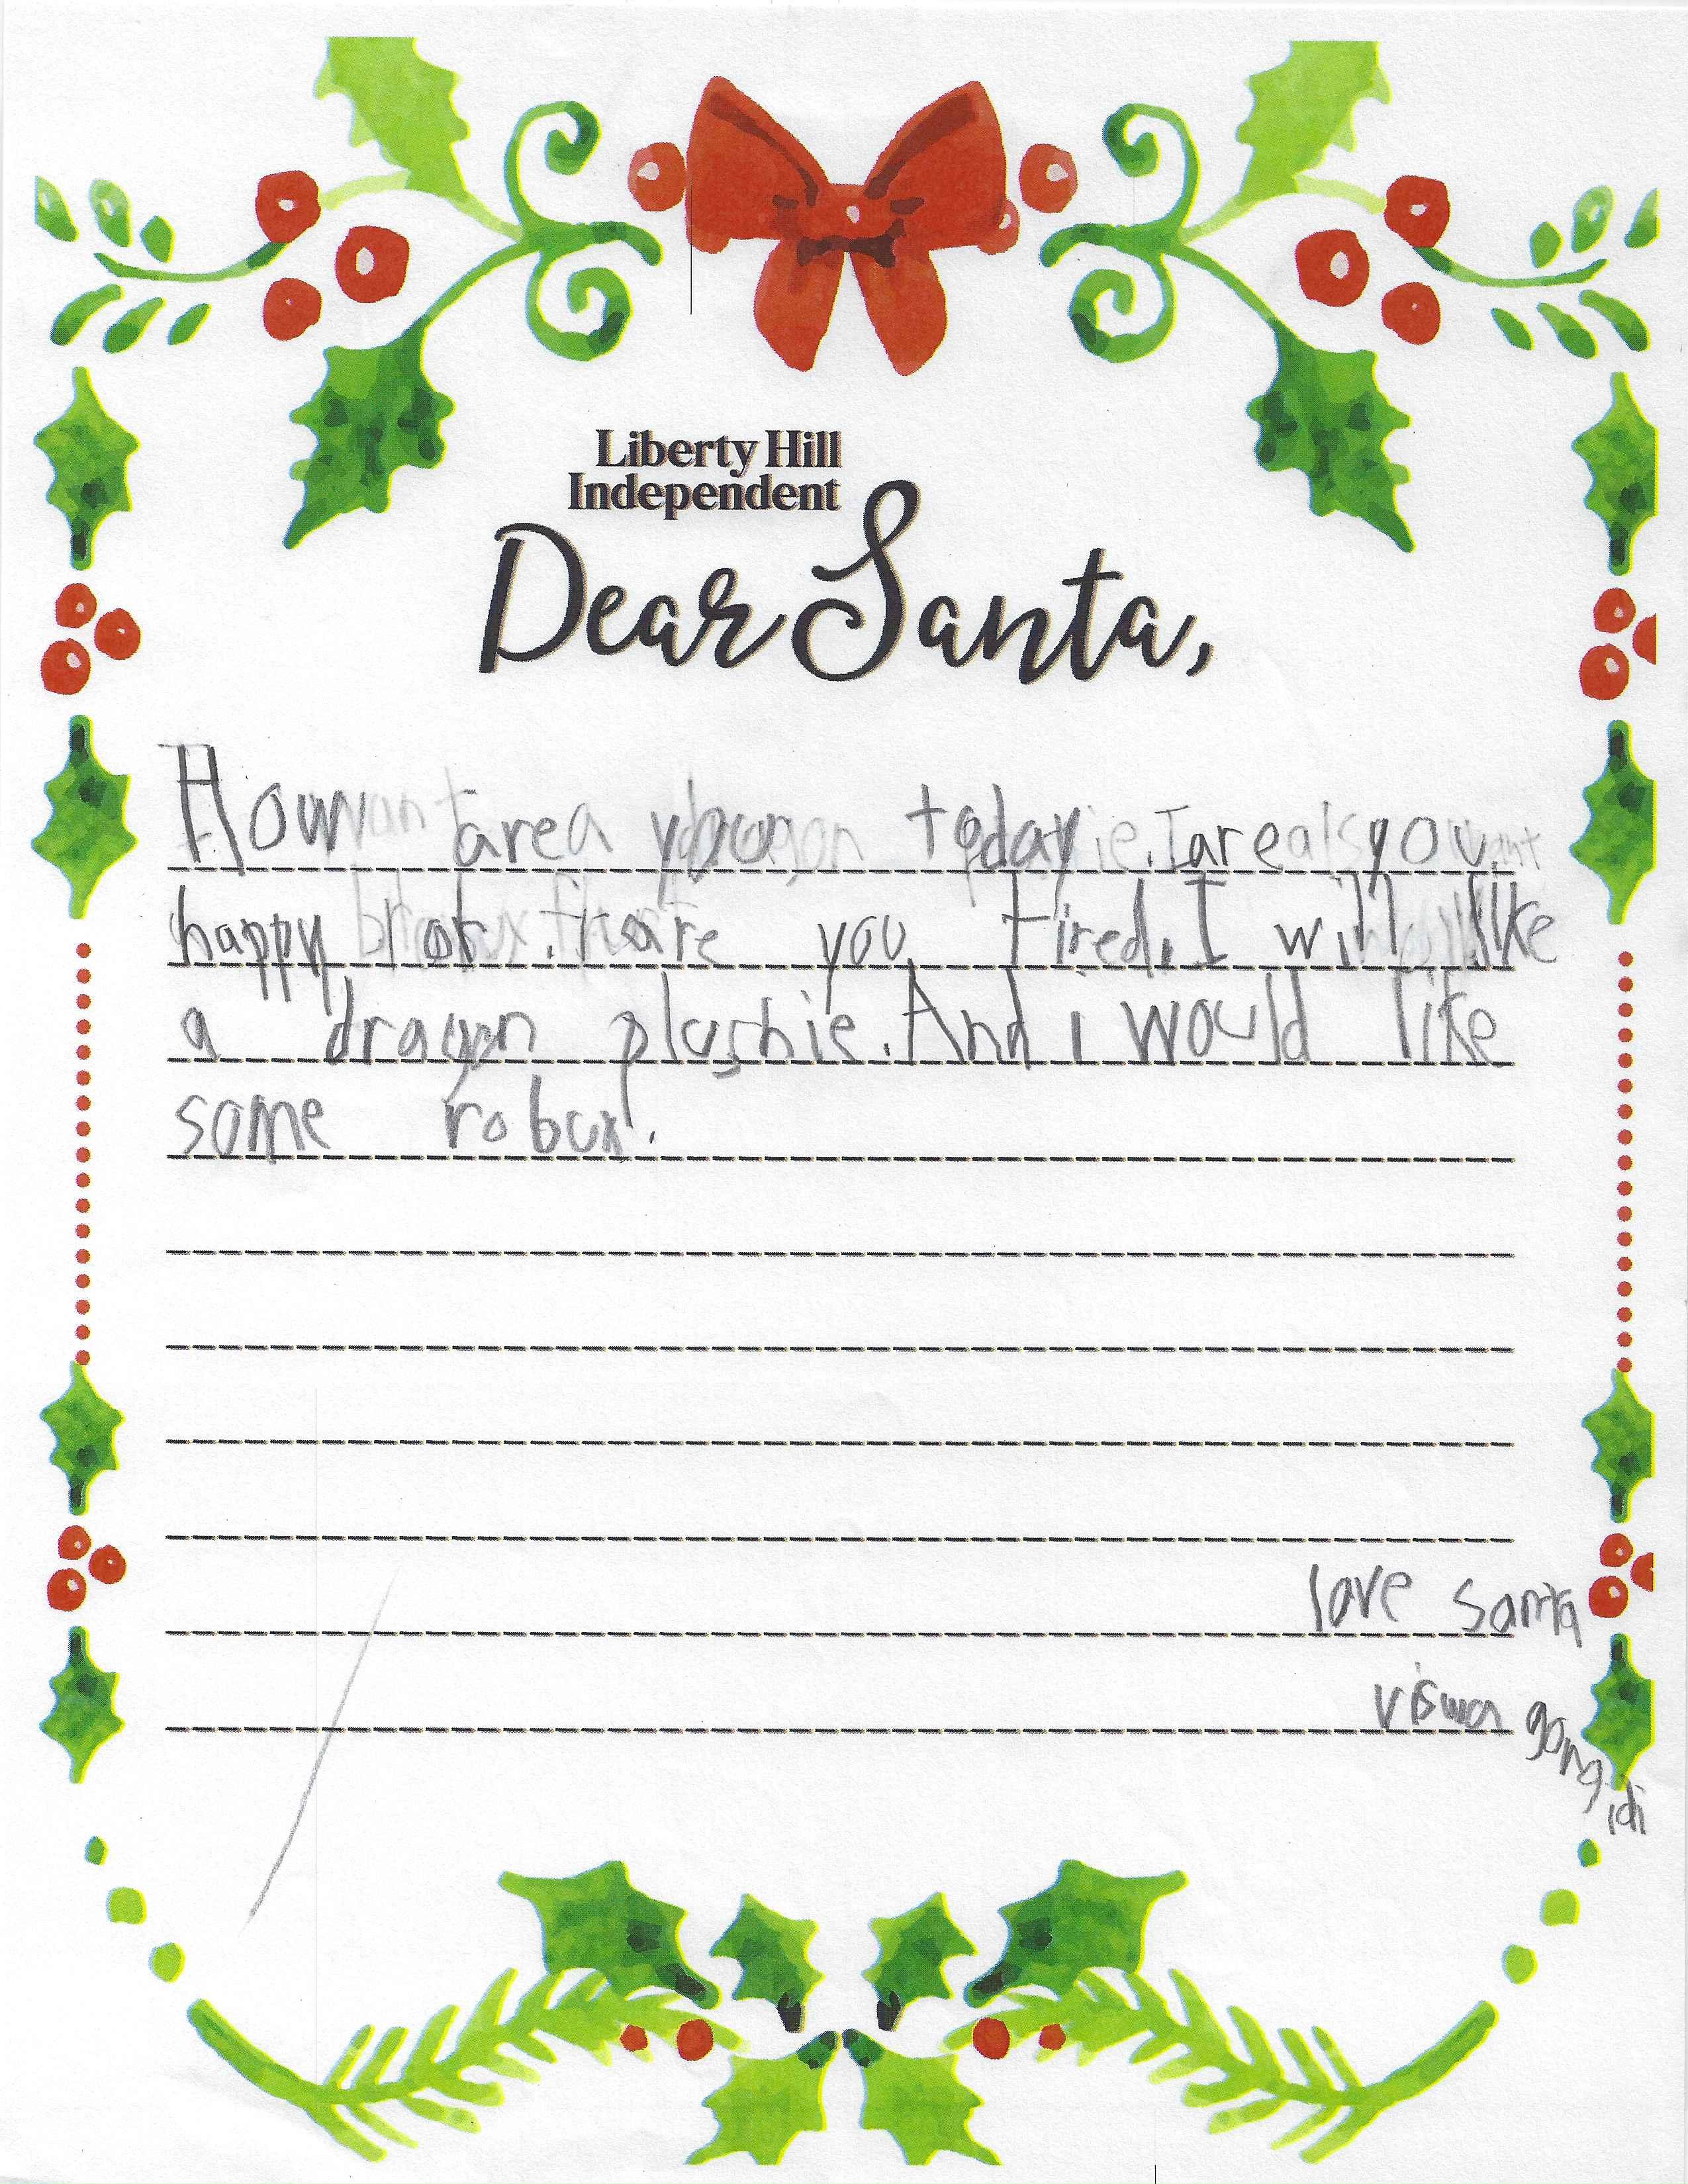 Liberty Hill
Independent
Dear Santa,
How are you today. are you
happy or are you tired. I will like
a dragon plushie. And i would like
some robux.
love santa
viswa gongidi